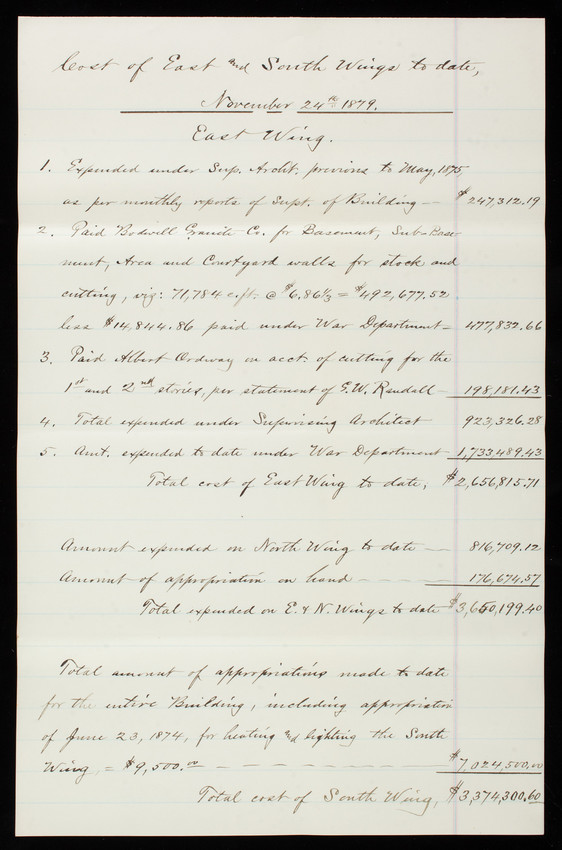 Cost of East and South Wings to date,
November 24th 1879.
East Wing.
1. Expended under Sup. Archt. previous to May, 1875,
as per monthly reports of Supt. of Building — $247,312.19
2. Paid Bodwell Granite Co. for Basement, Sub-Base-
ment, Area and Courtyard walls for stock and
cutting, viz: 71,784 c.ft. @ $6.86⅓ = $492,677.52
less $14,844.86 paid under War Department — 477,832.66
3. Paid Albert Ordway on acct. of cutting for the
1st and 2nd stories, per statement of G.W. Randall — 198,181.43
4. Total expended under Supervising Architect 923,326.28
5. Amt. expended to date under War Department — 1,733,489.43
Total cost of East Wing to date, $2,656,815.71
Amount expended on North Wing to date — 816,709.12
Amount of appropriation on hand — — — 176,674.57
Total expended on E. & N. Wings to date $3,650,199.40
Total amount of appropriations made to date
for the entire Building, including appropriation
of June 23, 1874, for heating and lighting the South
Wing, = $9,500.00 — — — — — — $7,024,500.00
Total cost of South Wing, $3,374,300.60